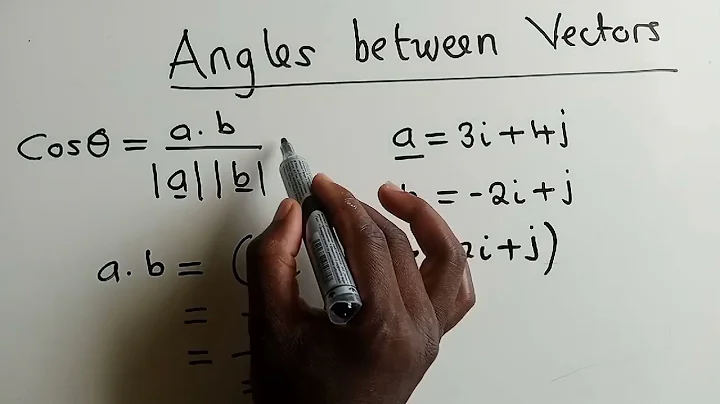 Angles between Vectors
Cosθ = a.b / |a||b|
a = 3i + 4j
= -2i + j
a.b = ( i + j)
=
=